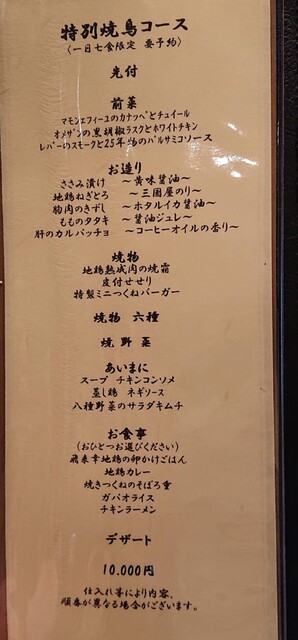 特別焼鳥コース
（一日七食限定 要予約）
先付
前菜
マモンエフィーユのカナッペとチュイール
オメザンの黒胡椒ラスクとホワイトチキン
レバーのスモークと25年物のバルサミコソース
お造り
ささみ漬け ～黄味醤油～
地鶏ねぎとろ ～三國屋のり～
胸肉のきずし ～ホタルイカ醤油～
もものタタキ ～醤油ジュレ～
肝のカルパッチョ ～コーヒーオイルの香り～
焼物
地鶏熟成肉の焼霜
皮付せせり
特製ミニつくねバーガー
焼物 六種
焼野菜
あいまに
スープ チキンコンソメ
蒸し鶏 ネギソース
八種野菜のサラダキムチ
お食事
（おひとつお選びください）
飛来幸地鶏の卵かけごはん
地鶏カレー
焼きつくねのそぼろ重
ガパオライス
チキンラーメン
デザート
10.000円
仕入れ等により内容、
順番が異なる場合がございます。